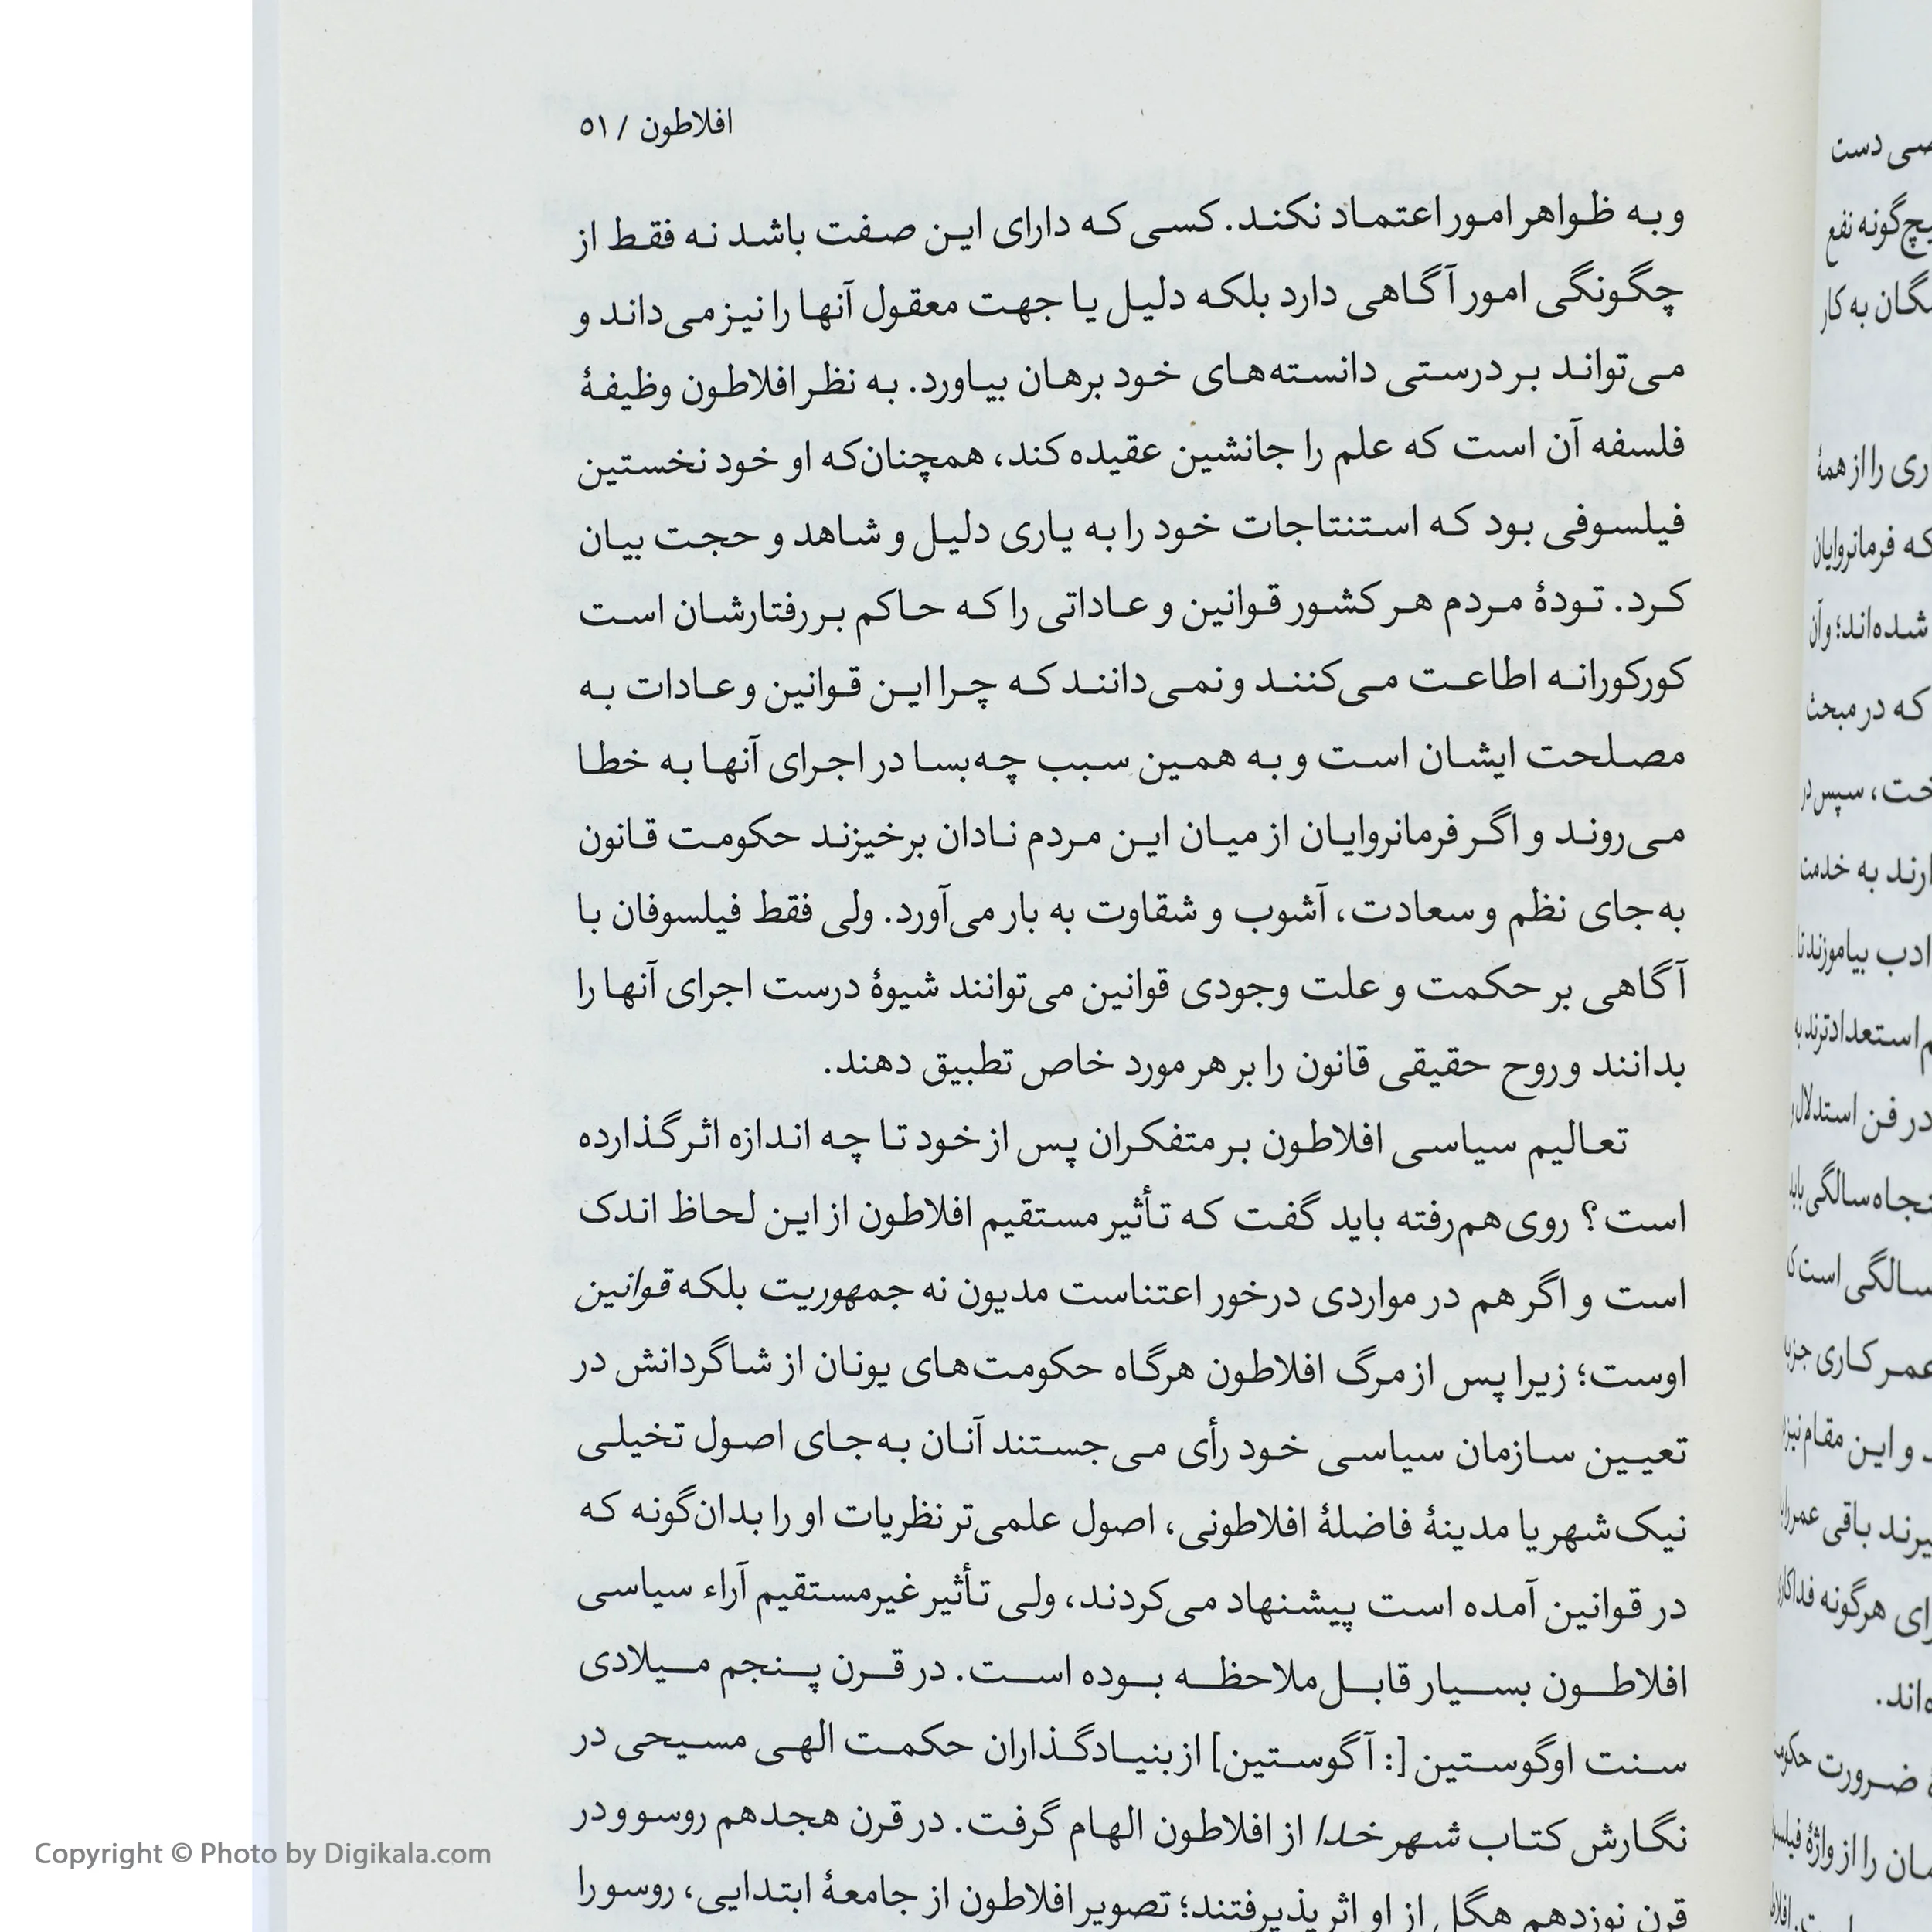 افلاطون / ۵۱
و به ظواهر امور اعتماد نکند. کسی که دارای این صفت باشد نه فقط از
چگونگی امور آگاهی دارد بلکه دلیل یا جهت معقول آنها را نیز می‌داند و
می‌تواند بر درستی دانسته‌های خود برهان بیاورد. به نظر افلاطون وظیفهٔ
فلسفه آن است که علم را جانشین عقیده کند، همچنان‌که او خود نخستین
فیلسوفی بود که استنتاجات خود را به یاری دلیل و شاهد و حجت بیان
کرد. تودهٔ مردم هر کشور قوانین و عاداتی را که حاکم بر رفتارشان است
کورکورانه اطاعت می‌کنند و نمی‌دانند که چرا این قوانین و عادات به
مصلحت ایشان است و به همین سبب چه‌بسا در اجرای آنها به خطا
می‌روند و اگر فرمانروایان از میان این مردم نادان برخیزند حکومت قانون
به‌جای نظم و سعادت، آشوب و شقاوت به بار می‌آورد. ولی فقط فیلسوفان با
آگاهی بر حکمت و علت وجودی قوانین می‌توانند شیوهٔ درست اجرای آنها را
بدانند و روح حقیقی قانون را بر هر مورد خاص تطبیق دهند.
تعالیم سیاسی افلاطون بر متفکران پس از خود تا چه اندازه اثر گذارده
است؟ روی‌هم‌رفته باید گفت که تأثیر مستقیم افلاطون از این لحاظ اندک
است و اگر هم در مواردی درخور اعتناست مدیون نه جمهوریت بلکه قوانین
اوست؛ زیرا پس از مرگ افلاطون هرگاه حکومت‌های یونان از شاگردانش در
تعیین سازمان سیاسی خود رأی می‌جستند آنان به‌جای اصول تخیلی
نیک‌شهر یا مدینهٔ فاضلهٔ افلاطونی، اصول علمی‌تر نظریات او را بدان‌گونه که
در قوانین آمده است پیشنهاد می‌کردند، ولی تأثیر غیرمستقیم آراء سیاسی
افلاطون بسیار قابل‌ملاحظه بوده است. در قرن پنجم میلادی
سنت اوگوستین [: آگوستین] از بنیادگذاران حکمت الهی مسیحی در
نگارش کتاب شهر خدا از افلاطون الهام گرفت. در قرن هجدهم روسو و در
قرن نوزدهم هگل از او اثر پذیرفتند؛ تصویر افلاطون از جامعهٔ ابتدایی، روسو را
دست
گونه نفع
به کار
را از همهٔ
که فرمانروایان
شده‌اند؛ و آن
که در مبحث
سپس در
به خدمت
ادب بیاموزند تا
استعدادترند به
در فن استدلال
سالگی
سالگی است
عمر کاری
و این مقام
باقی
هرگونه
ضرورت
را از واژهٔ
Copyright © Photo by Digikala.com